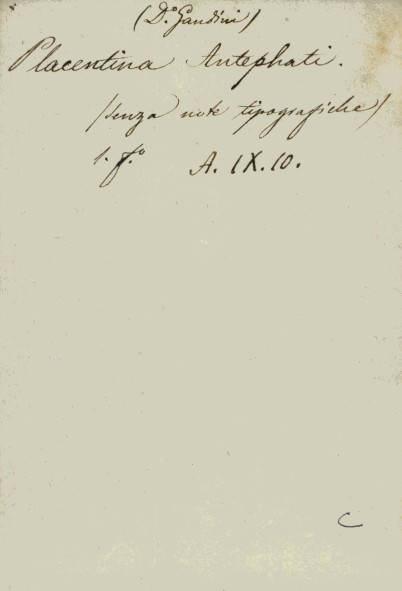 (D.º Gandini)
Placentina Antephati.
(senza note tipografiche)
1. f.º A. IX. 10.
C